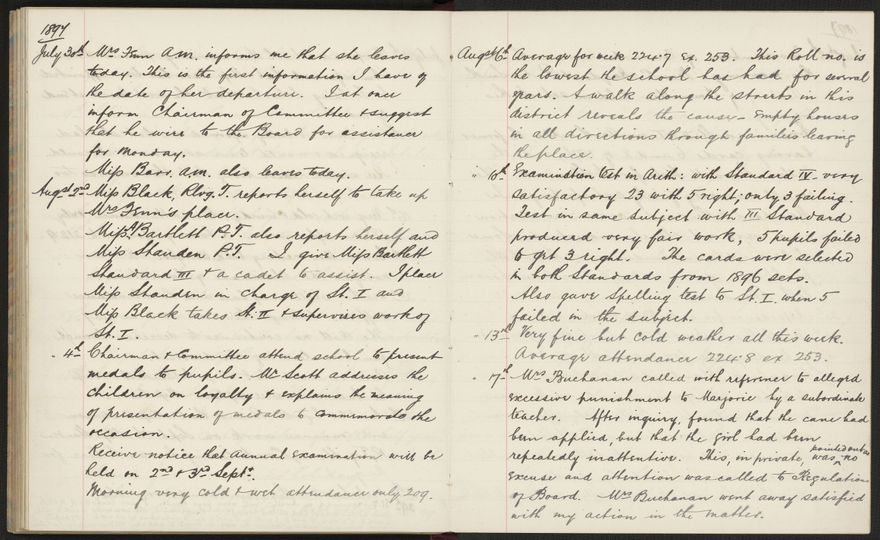 1897
July 30th Mrs Fenn A.M. informs me that she leaves
today. This is the first information I have of
the date of her departure. I at once
inform Chairman of Committee & suggest
that he wire to the Board for assistance
for Monday.
Miss Barr. A.M. also leaves today.
Augst 2nd Miss Black, Rlvg. T. reports herself to take up
Mrs Fenn's place.
Miss Bartlett P.T. also reports herself and
Miss Standen P.T. I give Miss Bartlett
Standard III & a cadet to assist. I place
Miss Standen in charge of St. I and
Miss Black takes St. II & supervises work of
St. I.
" 4th Chairman & Committee attend school to present
medals to pupils. Mr Scott addresses the
children on loyalty & explains the meaning
of presentation of medals to commemorate the
occasion.
Receive notice that Annual Examination will be
held on 2nd & 3rd Sept.
Morning very cold & wet attendance only 209.
Augst 6th Average for week 224.7 ex. 253. This Roll no. is
the lowest the school has had for several
years. A walk along the streets in this
district reveals the cause - Empty houses
in all directions through families leaving
the place.
" 10th Examination test in Arith: with Standard IV very
satisfactory 23 with 5 right; only 3 failing.
Test in same subject with III Standard
produced very fair work, 5 pupils failed
to get 3 right. The cards were selected
in both Standards from 1896 sets.
Also gave Spelling test to St. I, when 5
failed in the subject.
" 13th Very fine but cold weather all this week.
Average attendance 224.8 ex 253.
" 17th Mrs Buchanan called with reference to alleged
excessive punishment to Marjorie by a subordinate
teacher. After inquiry, found that the cane had
been applied, but that the girl had been
repeatedly inattentive. This, in private, was pointed out no
excuse and attention was called to Regulations
of Board. Mrs Buchanan went away satisfied
with my action in the matter.